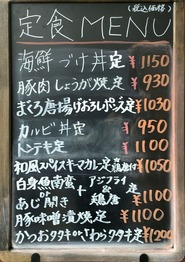 (税込価格)
定食 MENU
海鮮づけ丼定 ¥1150
豚肉しょうが焼定 ¥930
まぐろ唐揚げおろしポン定 ¥1030
カルビ丼定 ¥950
トンテキ定 ¥1100
和風スパイスキーマカレー定 ¥1050
白身魚南蛮 or あじ開き + アジフライ & 鶏唐 定 ¥1100
豚味噌漬焼定 ¥1100
かつおタタキ or わらタタキ定 ¥1200